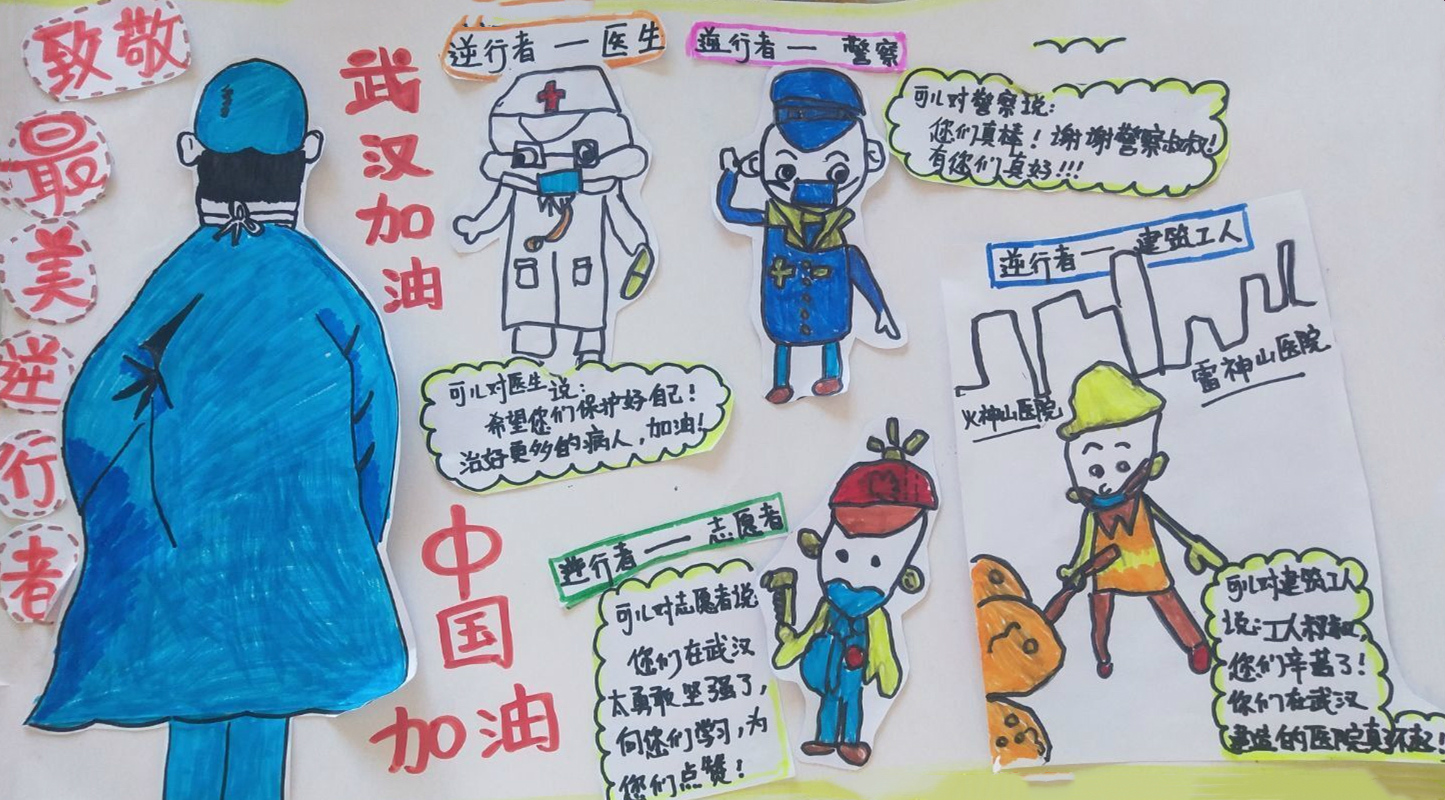 致敬
最
美
逆
行
者
武
汉
加
油
中
国
加油
逆行者 — 医生
可儿对医生说：
希望您们保护好自己！
治好更多的病人，加油！
逆行者 — 警察
可儿对警察说：
您们真棒！谢谢警察叔叔！
有您们真好！！！
逆行者 — 志愿者
可儿对志愿者说
您们在武汉
太勇敢坚强了，
向您们学习，为
您们点赞！
逆行者 — 建筑工人
火神山医院
雷神山医院
可儿对建筑工人
说：工人叔叔，
您们辛苦了！
你们在武汉
建造的医院真